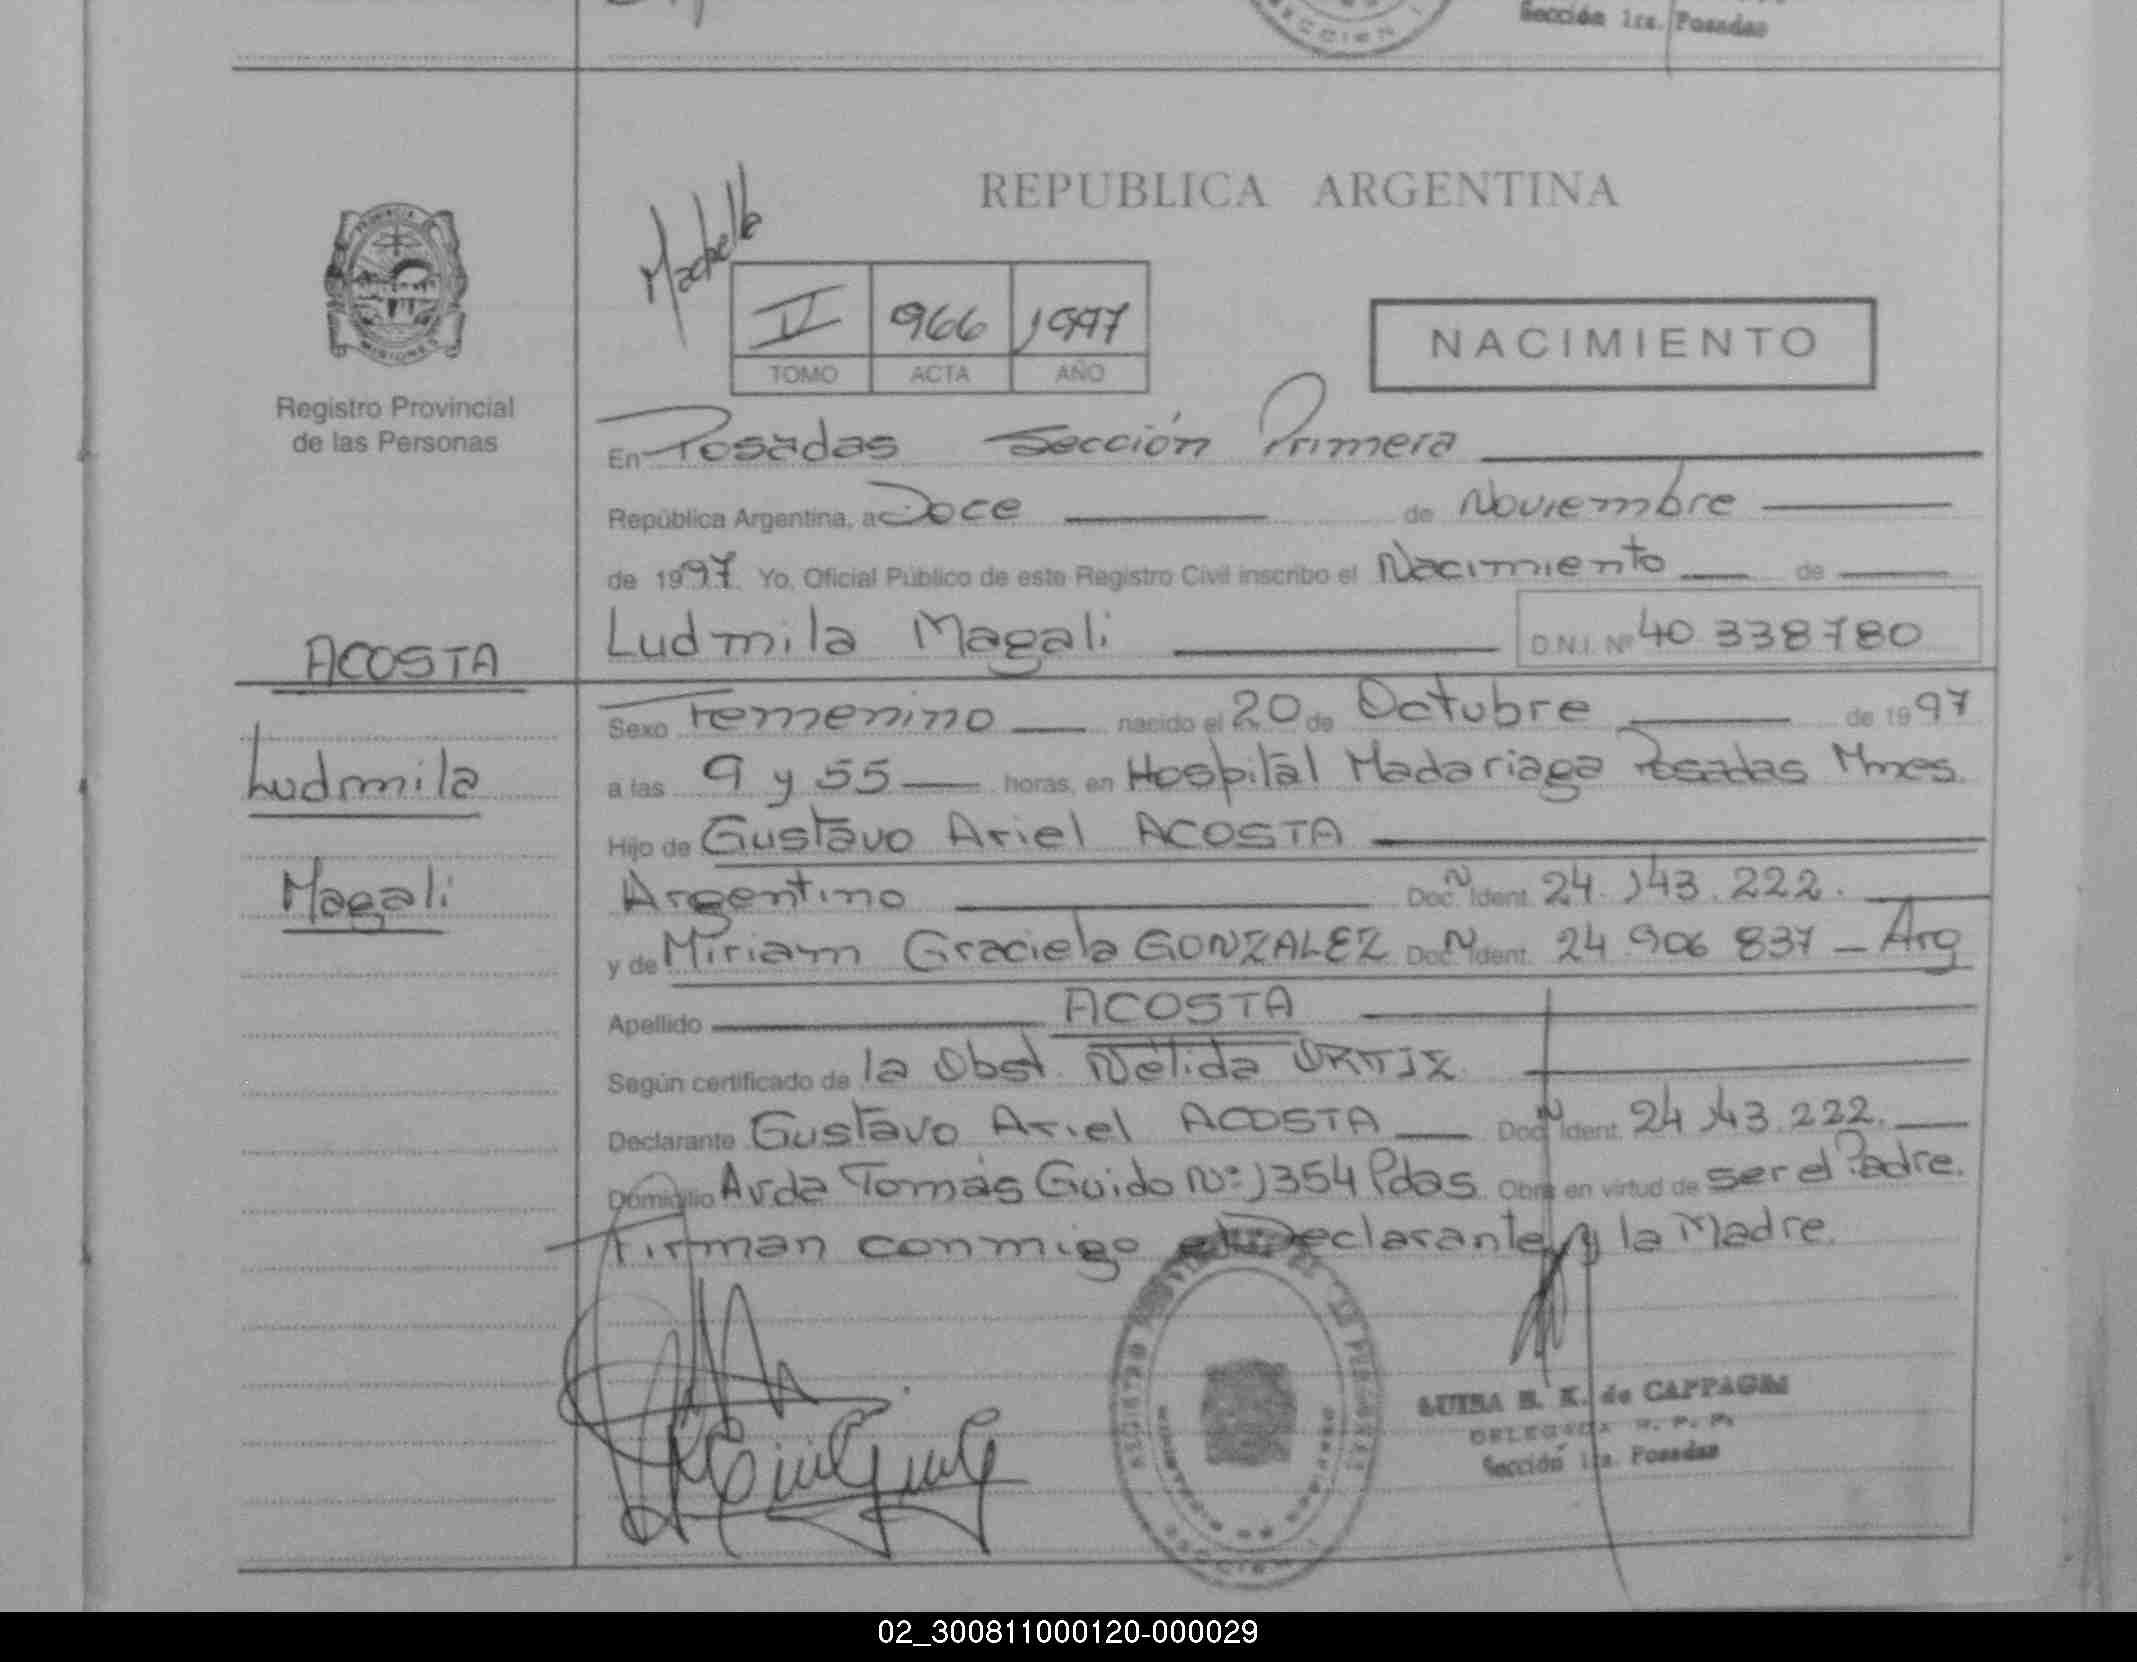 Sección 1ra. Posadas
REPUBLICA ARGENTINA
966 1997
TOMO ACTA AÑO
NACIMIENTO
MISIONES
Registro Provincial
de las Personas
En Posadas Sección Primera
República Argentina, a Doce de Noviembre
de 1997. Yo, Oficial Público de este Registro Civil inscribo el Nacimiento de
Ludmila Magali D.N.I. Nº 40 338780
ACOSTA
Ludmila
Magali
Sexo Femenino nacido el 20 de Octubre de 1997
a las 9 y 55 horas, en Hospital Madariaga Posadas Mnes.
Hijo de Gustavo Ariel ACOSTA
Argentino Doc. N Ident. 24.143.222.
y de Miriam Graciela GONZALEZ Doc. N Ident. 24.906 837 - Arg
Apellido ACOSTA
Según certificado de la Obst. Nélida ORTIZ
Declarante Gustavo Ariel ACOSTA Doc. N Ident. 24 143.222.
Domicilio Avda Tomás Guido Nº: 1354 Pdas. Obra en virtud de ser el Padre.
Firman conmigo Declarante y la Madre.
LUISA de CAPPAGNI
DELEGADA R. P. P.
Sección 1ra. Posadas
02_300811000120-000029